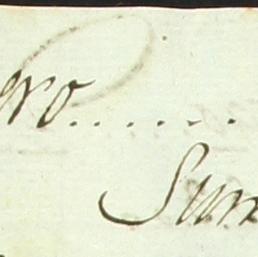 ero......
Sum